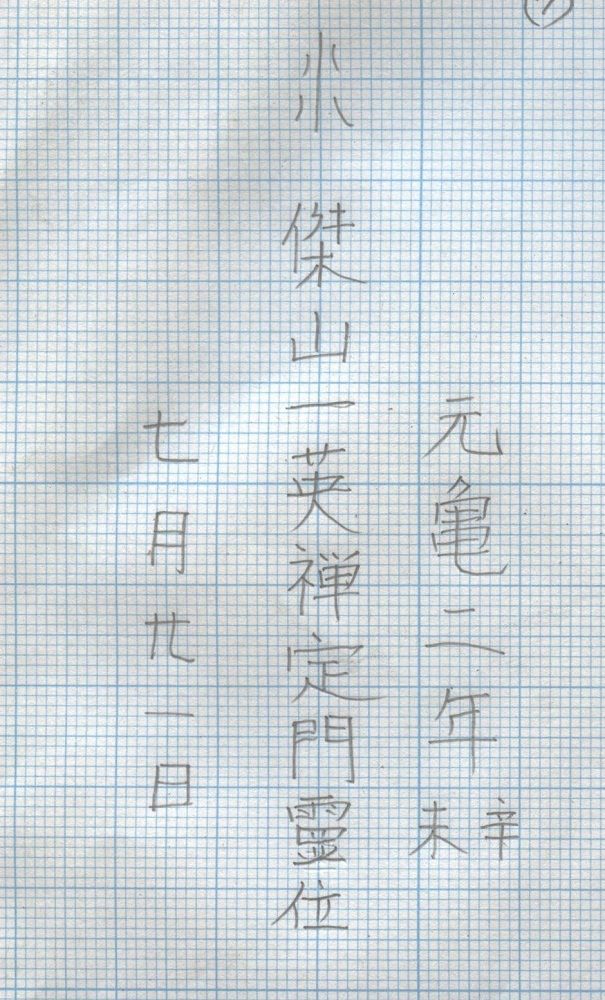 元亀二年辛未
傑山一英禅定門靈位
七月廿一日